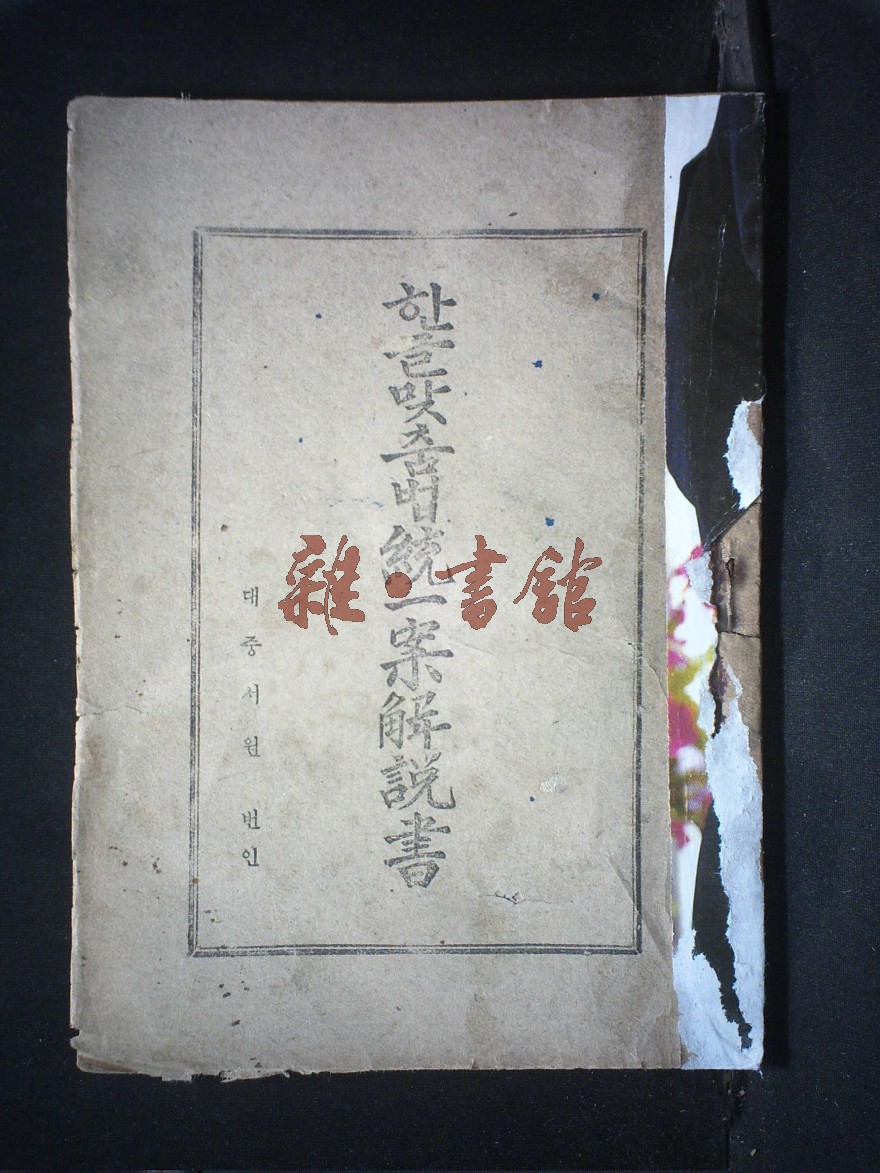 한글맞춤법統一案解説書
대중서원 번인
雜·書館